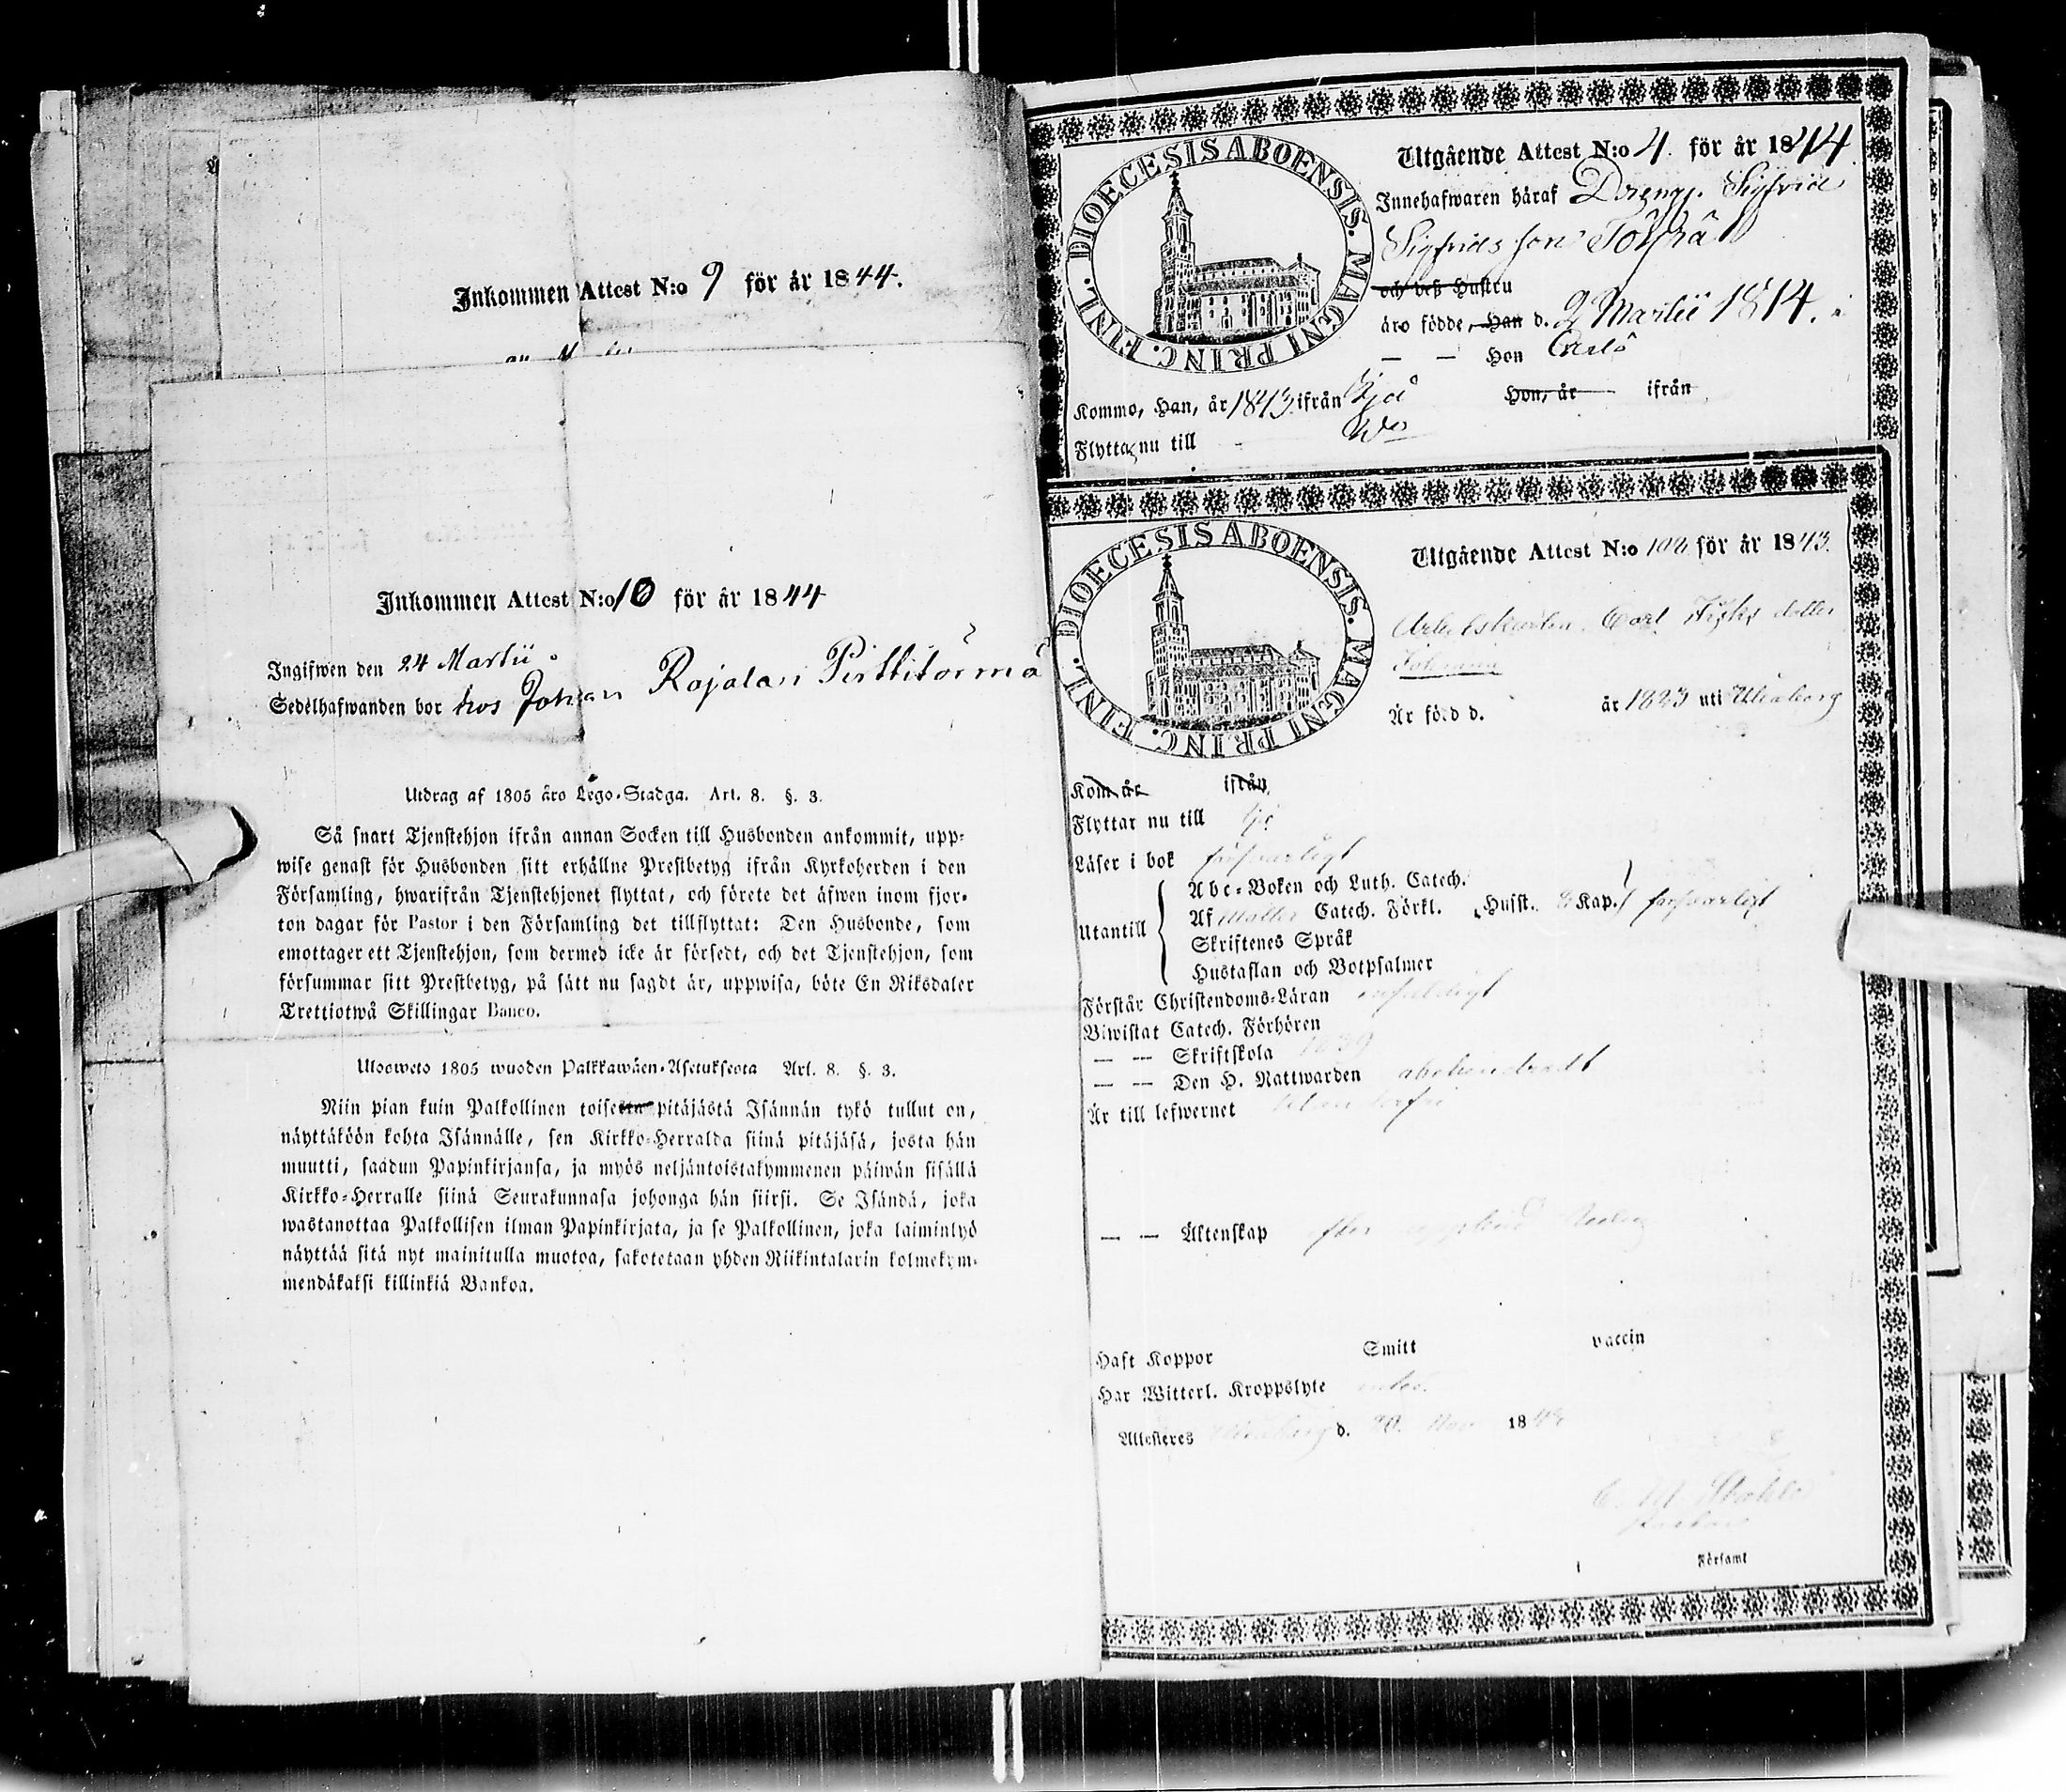 Inkommen Attest N:o 9 för år 1844.
Inkommen Attest N:o 10 för år 1844
Ingifwen den 24 Martii
Sedelhafwanden bor hos Johan Rajalan Pirttitörmä
Utdrag af 1805 års Lego-Stadga. Art. 8. §. 3.
Så snart Tjenstehjon ifrån annan Socken till Husbonden ankommit, upp-
wise genast för Husbonden sitt erhållne Prestbetyg ifrån Kyrkoherden i den
Församling, hwarifrån Tjenstehjonet flyttat, och förete det äfwen inom fjor-
ton dagar för Pastor i den Församling det tillflyttat: Den Husbonde, som
emottager ett Tjenstehjon, som dermed icke är försedt, och det Tjenstehjon, som
försummar sitt Prestbetyg, på sätt nu sagdt är, uppwisa, böte En Riksdaler
Trettiotwå Skillingar Banco.
Ulosweto 1805 wuoden Palkkawäen-Asetuksesta Art. 8. §. 3.
Niin pian kuin Palkollinen toisesta pitäjästä Isännän tykö tullut on,
näyttäköön kohta Isännälle, sen Kirkko-Herralda siinä pitäjäsä, josta hän
muutti, saadun Papinkirjansa, ja myös neljäntoistakymmenen päiwän sisällä
Kirkko-Herralle siinä Seurakunnasa johonga hän siirsi. Se Isändä, joka
wastanottaa Palkollisen ilman Papinkirjata, ja se Palkollinen, joka laiminlyö
näyttää sitä nyt mainitulla muotoa, sakotetaan yhden Riikintalarin kolmekym-
mendäkaksi killinkiä Bankoa.
DIOECESIS ABOENSIS. MAGNI PRINC. FINL.
Utgående Attest N:o 4. för år 1844.
Innehafwaren häraf Drengen Sigfrid
Sigfridsson
och deß Hustru
äro födde, Han d. 2 Martii 1814. i
— — Hon Carlö
Kommo, Han, år 1843 ifrån Ijå Hon, år ifrån
Flytta nu till
DIOECESIS ABOENSIS. MAGNI PRINC. FINL.
Utgående Attest N:o 102 för år 1843.
Arbetskarlen Carl dotter
Johanna
Är född d. år 1823 uti Uleåborg
Kom år ifrån
Flyttar nu till Ijo
Läser i bok försvarligt
Utantill
Abc-Boken och Luth. Catech.
Af Catech. Förkl. Husst. Kap. försvarligt
Skriftenes Språk
Hustaflan och Botpsalmer
Förstår Christendoms-Läran enfaldigt
Biwistat Catech. Förhören
— — Skriftskola 1839
— — Den H. Nattwarden obehindradt
Är till lefwernet
— — Äktenskap
Haft Koppor Smitt vaccin
Har Witterl. Kroppslyte
Attesteres Uleåborg d. 20. Nov 1843
Församl